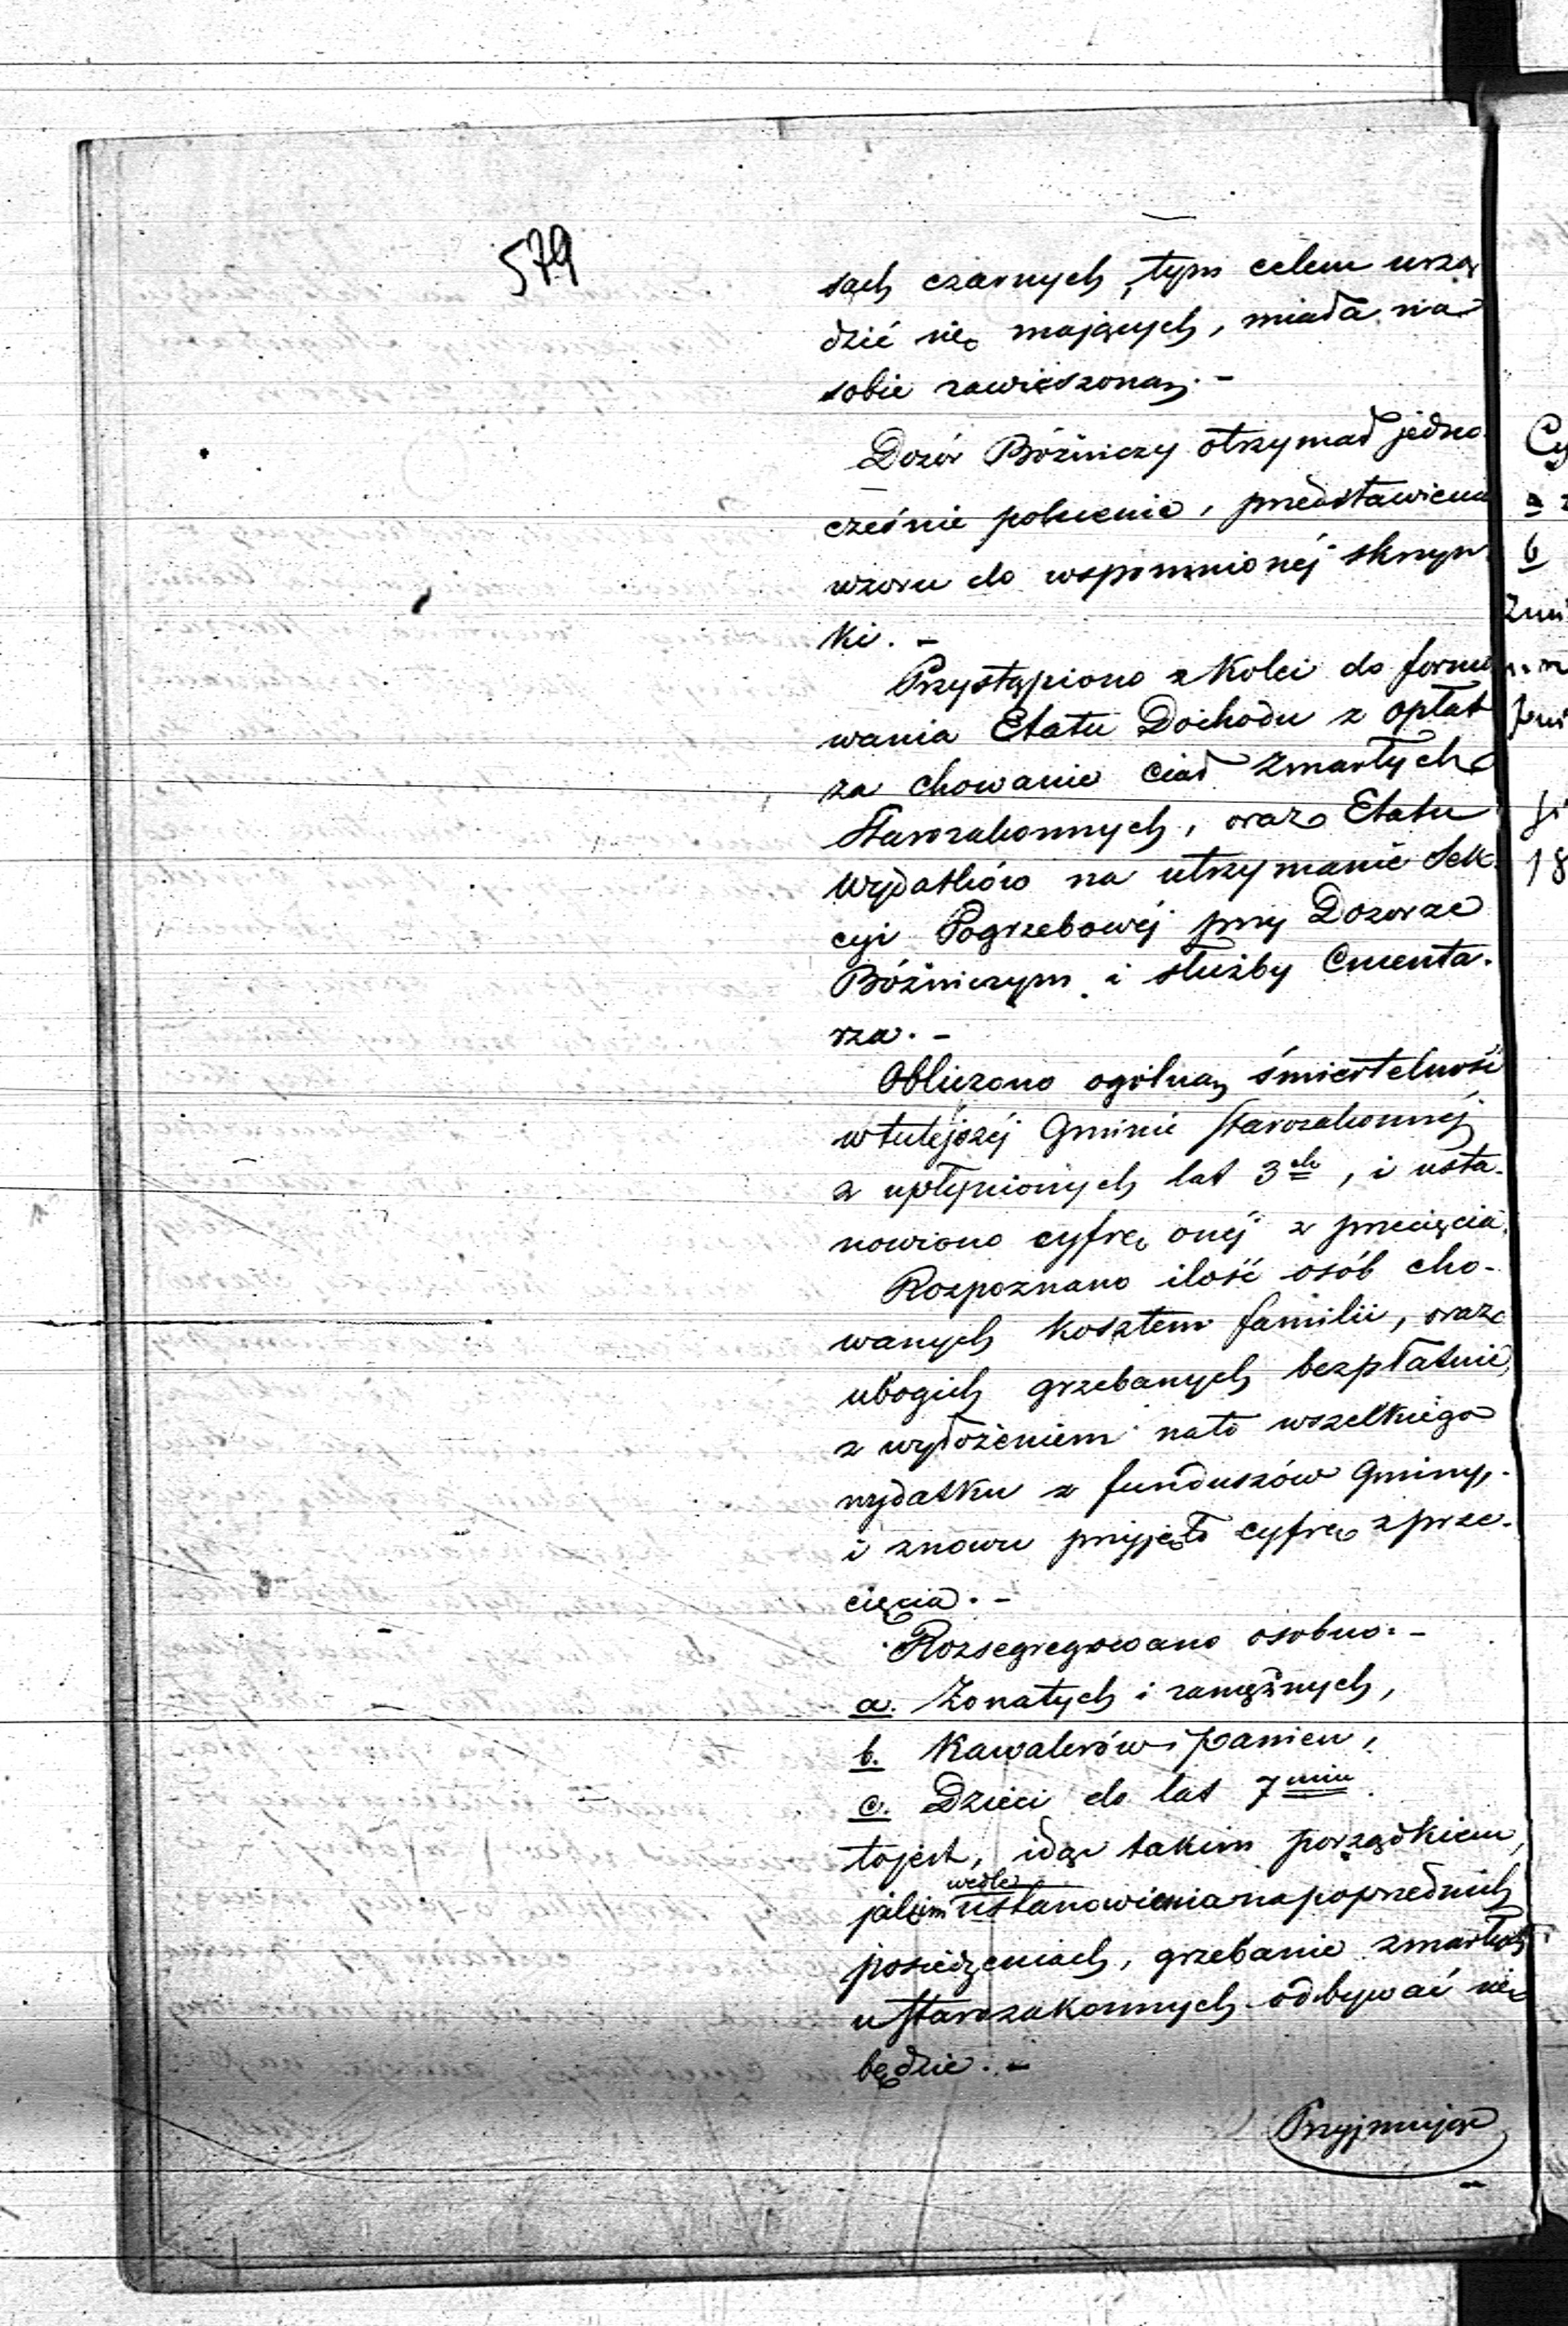 579
sach czarnych tym celem urzą
dzić się mających, miała na
sobie zawieszoną. -
Dozór Bóźniczy otrzymał jedno
cześnie polecenie, przedstawienia
wzoru do wspomnionéj skrzyn
ki. -
Przystąpiono z kolei do formo
wania Etatu Dochodu z opłat
za chowanie ciał zmarłych
Starozakonnych, oraz Etatu
wydatków na utrzymanie Sek
cyi Pogrzebowéj przy Dozorze
Bóźniczym i służby Cmenta-
rza. -
Obliczono ogólną śmiertelność
w tutéjszéj Gminie Starozakonnéj
z upłynionych lat 3ch, i usta-
nowiono cyfrę onéj z przecięcia.
Rozpoznano ilość osób cho-
wanych kosztem familii, oraz
ubogich grzebanych bezpłatnie,
z wyłożeniem na to wszelkiego
wydatku z funduszów Gminy,
i znowu przyjęto cyfrę z prze-
cięcia. -
Rozsegregowano osobno. -
a. Żonatych i zamężnych,
b. Kawalerów i panien,
c. Dzieci do lat 7miu
tojest, idąc takim porządkiem,
jakim wedle ustanowienia na poprzednich
posiedzeniach, grzebanie zmarłych
u Starozakonnych odbywać się
będzie. -
Przyjmując